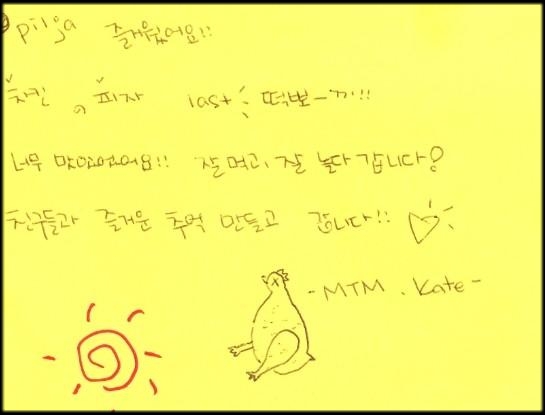 @pilja 즐거웠어요!!
치킨, 피자 last 떡뽀-끼!!
너무 맛있었어요!! 잘먹고, 잘 놀다 갑니다?
친구들과 즐거운 추억 만들고 갑니다!!
-MTM. Kate-